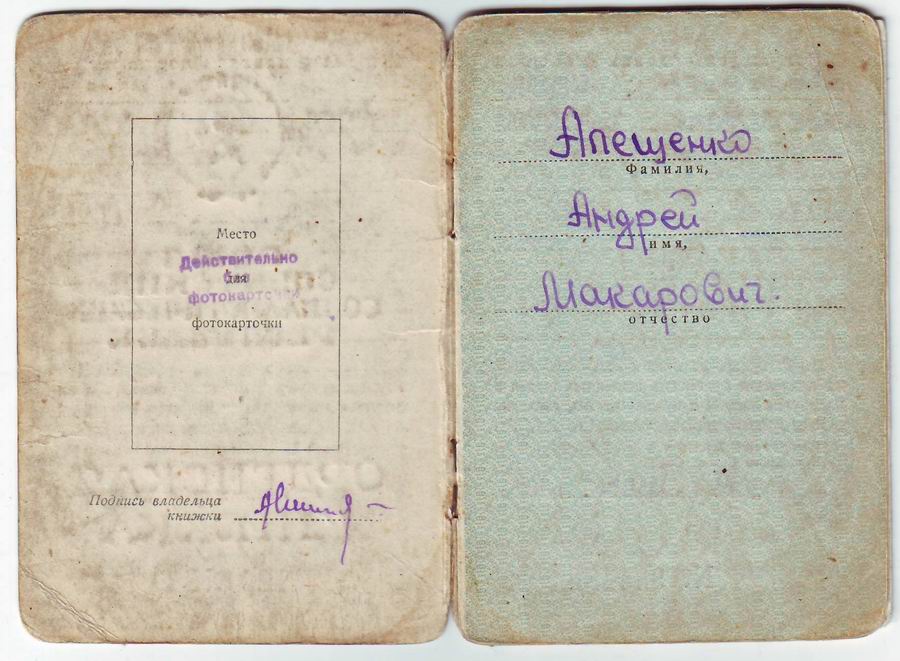 Место
Действительно
без
для
фотокарточки
фотокарточки
Подпись владельца
книжки
Апещенко
Фамилия,
Андрей
имя,
Макарович.
отчество